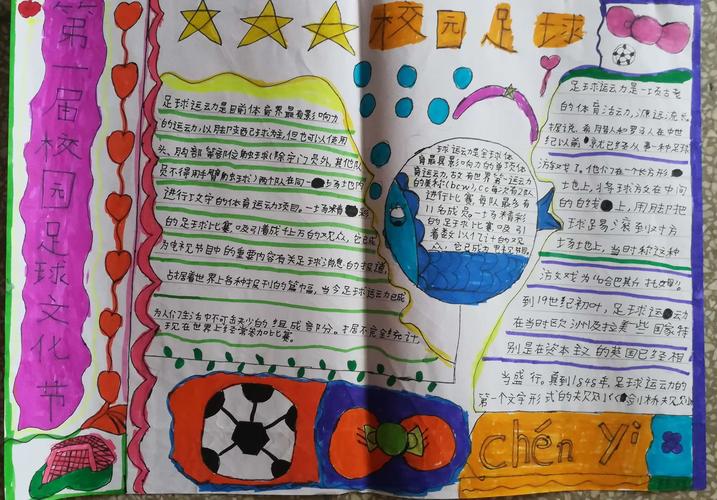 第一届校园足球文化节
校园足球
足球运动是目前体育界最有影响力
的运动,以脚支配球为主,但也可以使用
头、胸部等部位触球(除守门员外,其他队
员不得用手臂触球)两个队在同一场地内
进行攻守的体育运动项目。一场
的足球比赛,吸引着成千上万的观众,它已成
为电视节目中的重要内容有关足球消息的报道,
占据着世界上各种报刊的篇幅,当今足球运动已成
为人们生活中不可缺少的组成部分。据不完全统计,
现在世界上经常参加比赛。
球运动是全球体
育最具影响力的单项体
育运动,故有世界第一运动
的美称
进行比赛每队最多有
11名成员。一场精彩
的足球比赛吸引
着数以亿计的观
众,它已成为电视节目
足球运动是一场古老
的体育活动,源远流长。
据说,希腊人和罗马人在中世
纪以前就已经从事一种足球
游戏了。他们在一个长方形
地上,将球放在中间
的白线上,用脚把
球踢滚到对方
场地上,当时称这种
游戏为"哈巴斯托姆"
到19世纪初叶,足球运动
在当时欧洲及拉美一些国家特
别是在资本主义的英国已经相
当盛行。直到1848年,足球运动的
第一个文字形式的规则《剑桥规则
chén yi